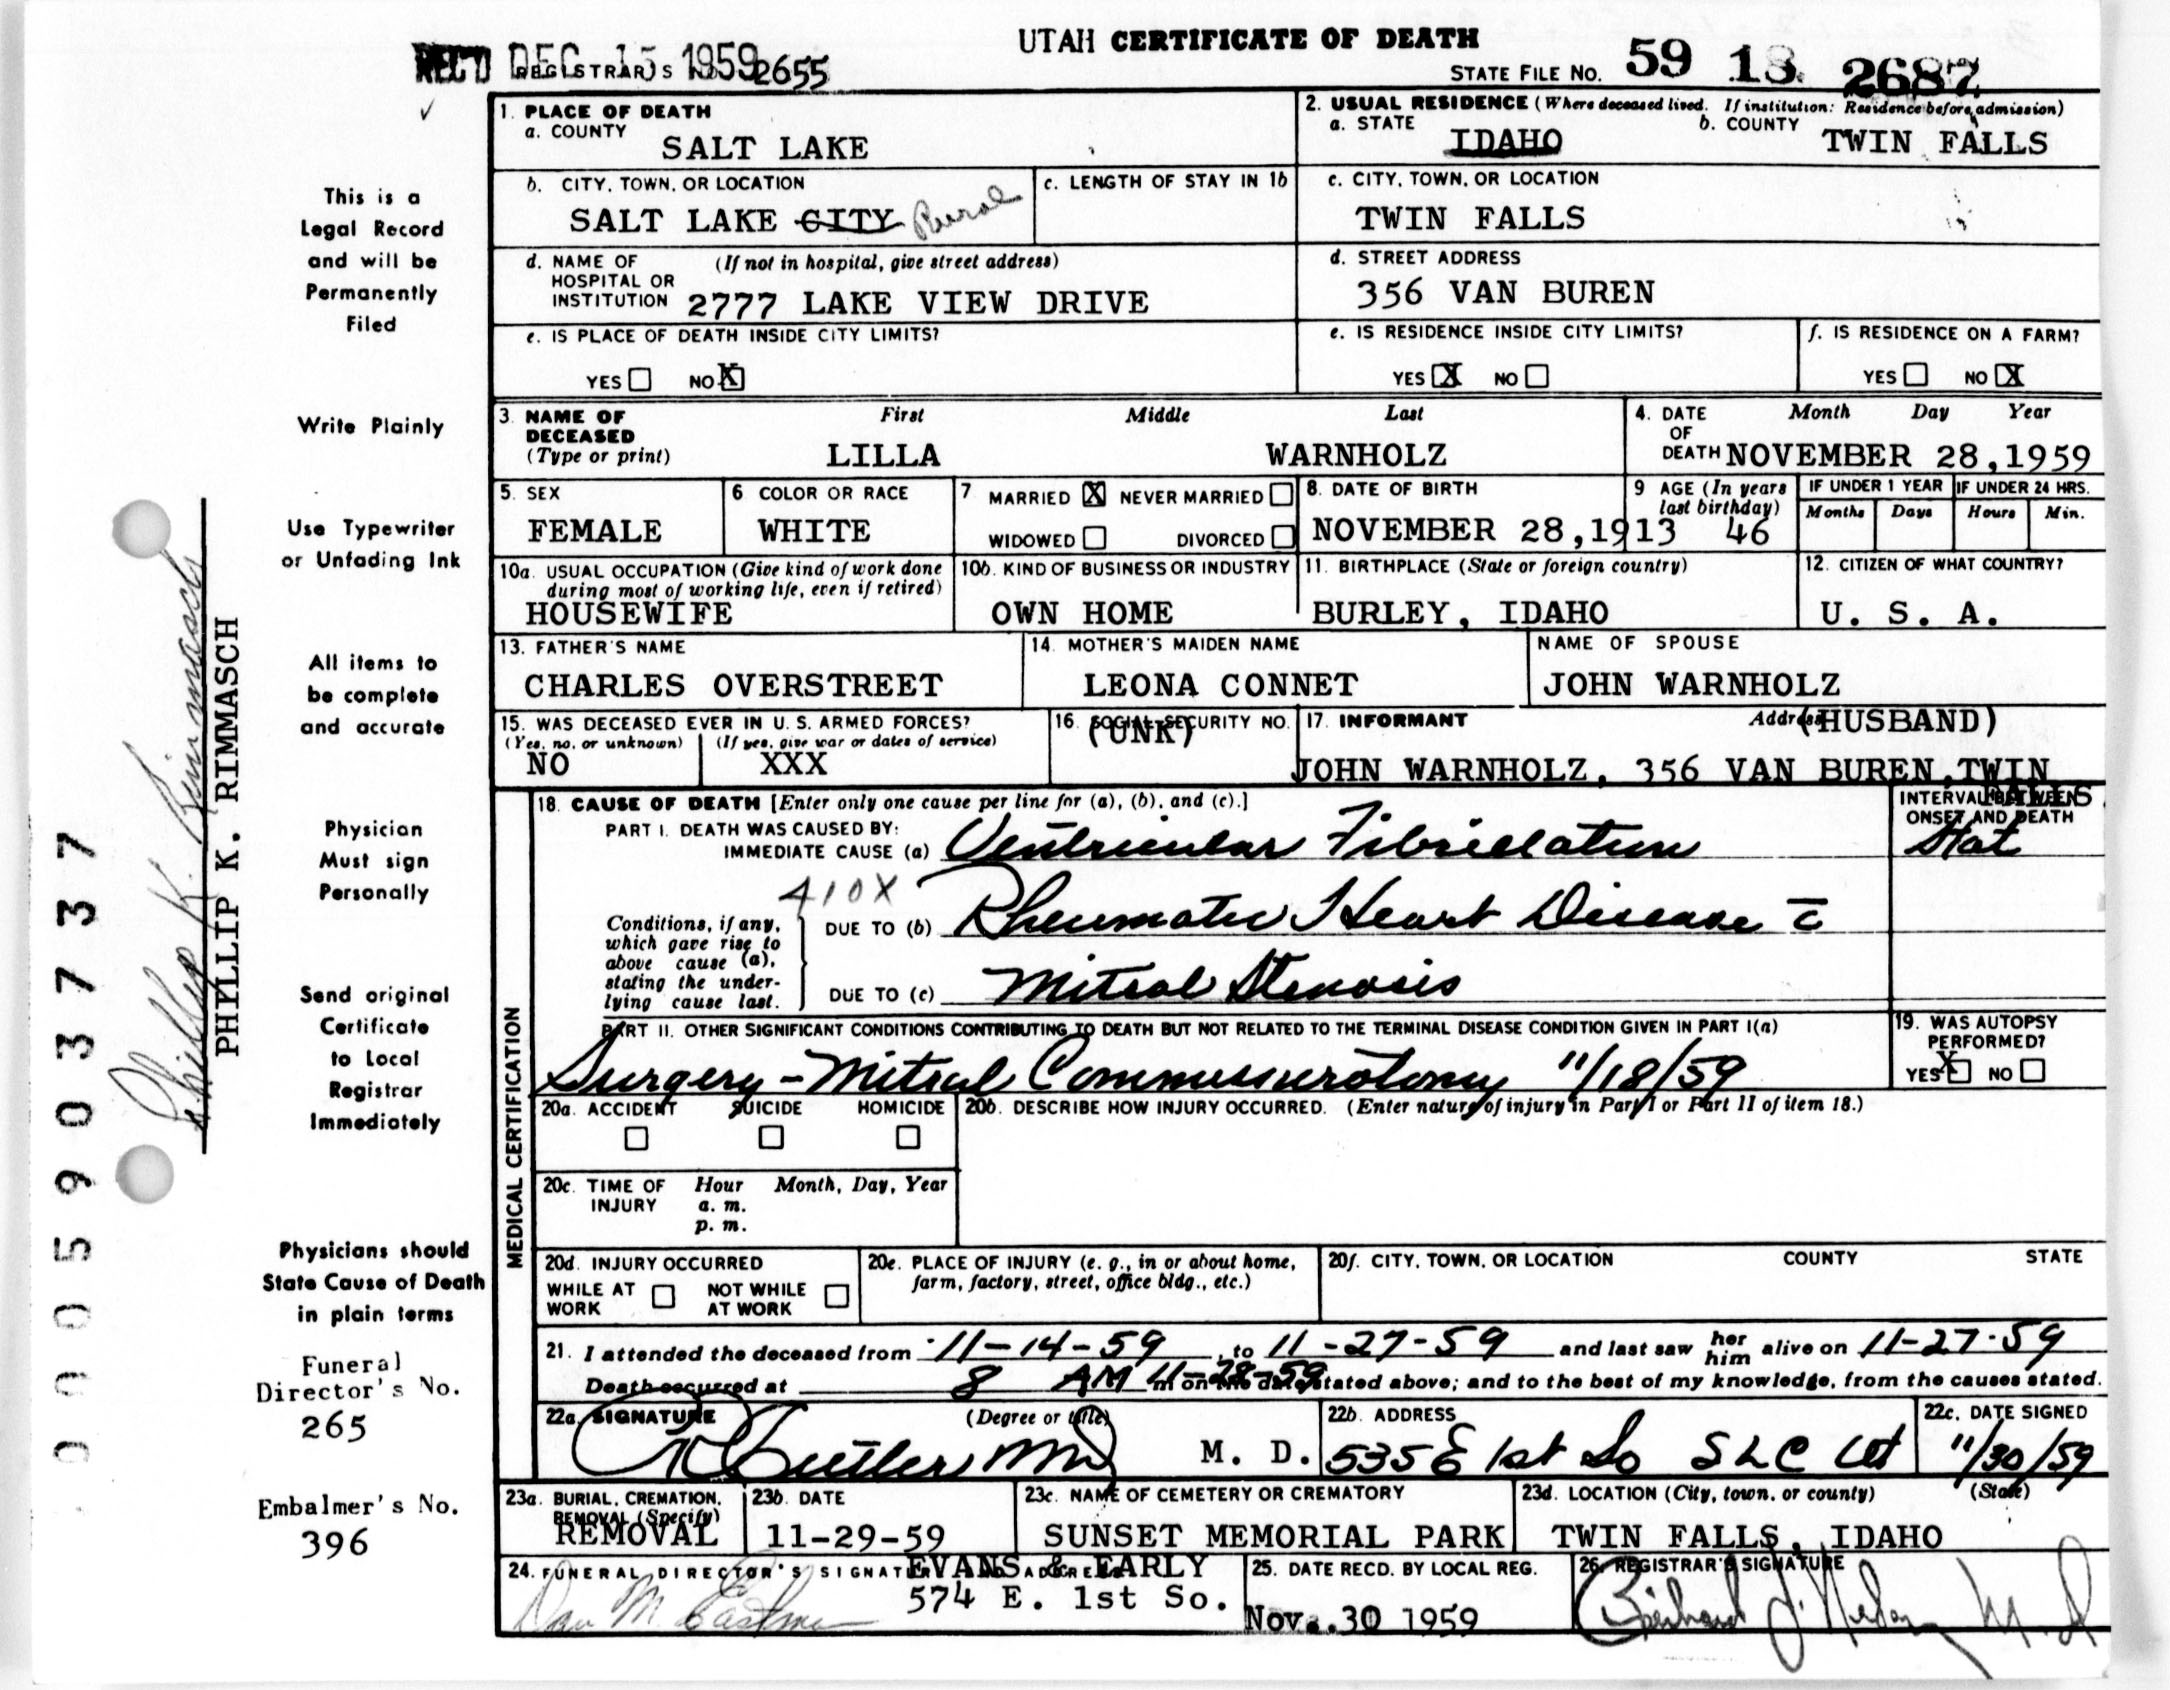 UTAH CERTIFICATE OF DEATH
REC'D DEC 15 1959
REGISTRAR'S NO. 2655
STATE FILE No. 59 18 2687
1. PLACE OF DEATH
a. COUNTY
SALT LAKE
2. USUAL RESIDENCE (Where deceased lived. If institution: Residence before admission)
a. STATE IDAHO b. COUNTY TWIN FALLS
b. CITY, TOWN, OR LOCATION
SALT LAKE CITY Rural
c. LENGTH OF STAY IN 1b
c. CITY, TOWN, OR LOCATION
TWIN FALLS
d. NAME OF HOSPITAL OR INSTITUTION (If not in hospital, give street address)
2777 LAKE VIEW DRIVE
d. STREET ADDRESS
356 VAN BUREN
e. IS PLACE OF DEATH INSIDE CITY LIMITS?
YES NO X
e. IS RESIDENCE INSIDE CITY LIMITS?
YES X NO
f. IS RESIDENCE ON A FARM?
YES NO X
3. NAME OF DECEASED (Type or print)
First Middle Last
LILLA WARNHOLZ
4. DATE OF DEATH Month Day Year
NOVEMBER 28,1959
5. SEX
FEMALE
6 COLOR OR RACE
WHITE
7 MARRIED X NEVER MARRIED
WIDOWED DIVORCED
8. DATE OF BIRTH
NOVEMBER 28,1913
9 AGE (In years last birthday)
46
IF UNDER 1 YEAR
Months Days
IF UNDER 24 HRS.
Hours Min.
10a. USUAL OCCUPATION (Give kind of work done during most of working life, even if retired)
HOUSEWIFE
10b. KIND OF BUSINESS OR INDUSTRY
OWN HOME
11. BIRTHPLACE (State or foreign country)
BURLEY, IDAHO
12. CITIZEN OF WHAT COUNTRY?
U. S. A.
13. FATHER'S NAME
CHARLES OVERSTREET
14. MOTHER'S MAIDEN NAME
LEONA CONNET
NAME OF SPOUSE
JOHN WARNHOLZ
15. WAS DECEASED EVER IN U. S. ARMED FORCES?
(Yes, no, or unknown) (If yes, give war or dates of service)
NO XXX
16. SOCIAL SECURITY NO.
(UNK)
17. INFORMANT Address (HUSBAND)
JOHN WARNHOLZ, 356 VAN BUREN, TWIN FALLS
MEDICAL CERTIFICATION
18. CAUSE OF DEATH [Enter only one cause per line for (a), (b), and (c).]
PART I. DEATH WAS CAUSED BY:
IMMEDIATE CAUSE (a) Ventricular Fibrillation
INTERVAL BETWEEN ONSET AND DEATH
Stat
410X
Conditions, if any, which gave rise to above cause (a), stating the underlying cause last.
DUE TO (b) Rheumatic Heart Disease c̄
DUE TO (c) Mitral Stenosis
PART II. OTHER SIGNIFICANT CONDITIONS CONTRIBUTING TO DEATH BUT NOT RELATED TO THE TERMINAL DISEASE CONDITION GIVEN IN PART I(a)
Surgery - Mitral Commissurotomy 11/18/59
19. WAS AUTOPSY PERFORMED?
YES X NO
20a. ACCIDENT SUICIDE HOMICIDE
20b. DESCRIBE HOW INJURY OCCURRED. (Enter nature of injury in Part I or Part II of item 18.)
20c. TIME OF INJURY Hour Month, Day, Year
a. m.
p. m.
20d. INJURY OCCURRED
WHILE AT WORK NOT WHILE AT WORK
20e. PLACE OF INJURY (e. g., in or about home, farm, factory, street, office bldg., etc.)
20f. CITY, TOWN, OR LOCATION COUNTY STATE
21. I attended the deceased from 11-14-59, to 11-27-59 and last saw her him alive on 11-27-59
Death occurred at 8 AM 11-28-59 m on the date stated above; and to the best of my knowledge, from the causes stated.
22a. SIGNATURE (Degree or title)
Cutler MD M. D.
22b. ADDRESS
535 E 1st So SLC Ut
22c. DATE SIGNED
11/30/59
23a. BURIAL, CREMATION, REMOVAL (Specify)
REMOVAL
23b. DATE
11-29-59
23c. NAME OF CEMETERY OR CREMATORY
SUNSET MEMORIAL PARK
23d. LOCATION (City, town, or county) (State)
TWIN FALLS, IDAHO
24. FUNERAL DIRECTOR'S SIGNATURE AND ADDRESS
EVANS & EARLY
574 E. 1st So.
25. DATE RECD. BY LOCAL REG.
Nov. 30 1959
26. REGISTRAR'S SIGNATURE
This is a
Legal Record
and will be
Permanently
Filed
Write Plainly
Use Typewriter
or Unfading Ink
All items to
be complete
and accurate
Physician
Must sign
Personally
Send original
Certificate
to Local
Registrar
Immediately
Physicians should
State Cause of Death
in plain terms
Funeral
Director's No.
265
Embalmer's No.
396
Phillip K. Rimmasch
PHYLLIP K. RIMMASCH
0005903737